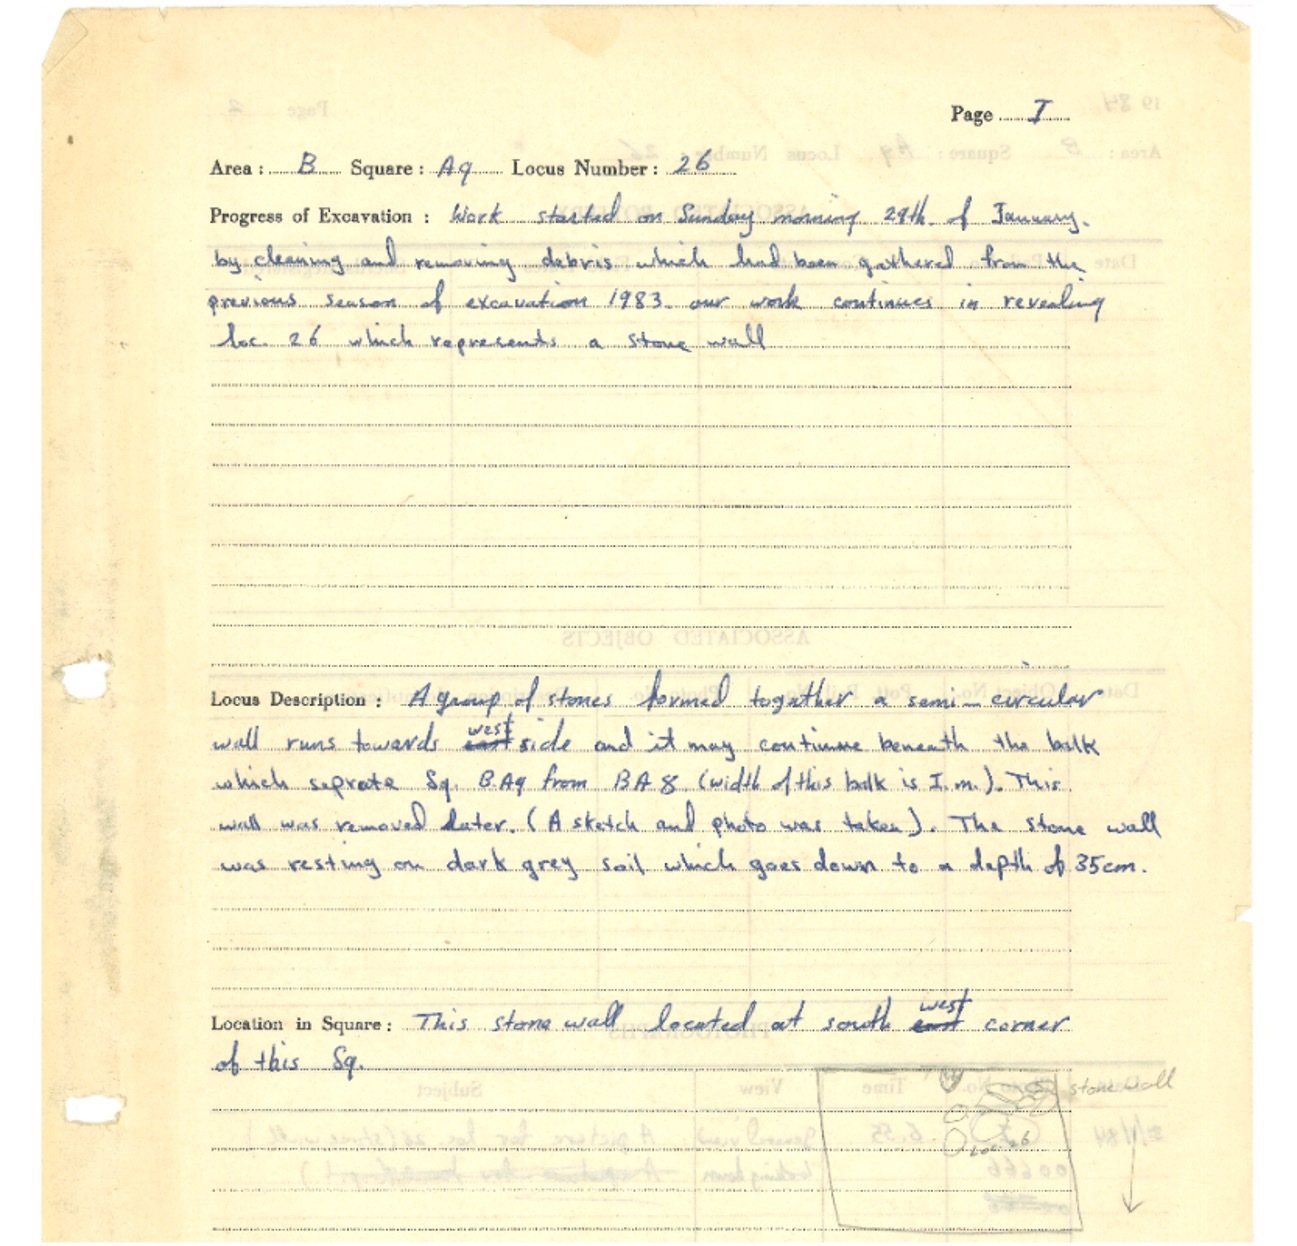 Page I
Area : B Square : A9 Locus Number : 26
Progress of Excavation : Work started on Sunday morning 29th of January.
by cleaning and removing debris which had been gathered from the
previous season of excavation 1983. our work continues in revealing
loc. 26 which represents a stone wall
Locus Description : A group of stones formed together a semi-circular
wall runs towards east west side and it may continue beneath the balk
which seprate Sq. B.A9 from BA8 (width of this balk is I.m.). This
wall was removed later. (A sketch and photo was taken). The stone wall
was resting on dark grey soil which goes down to a depth of 35cm.
Location in Square : This stone wall located at south east west corner
of this Sq.
stone wall
Loc. 26